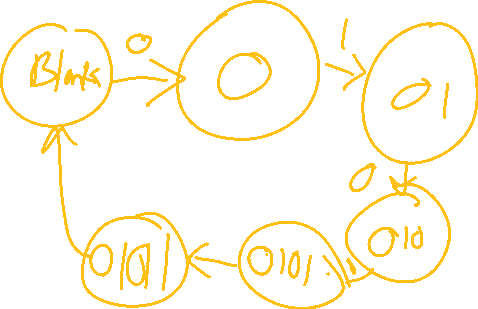 Blank
0
0
1
01
0
010
0101
0101